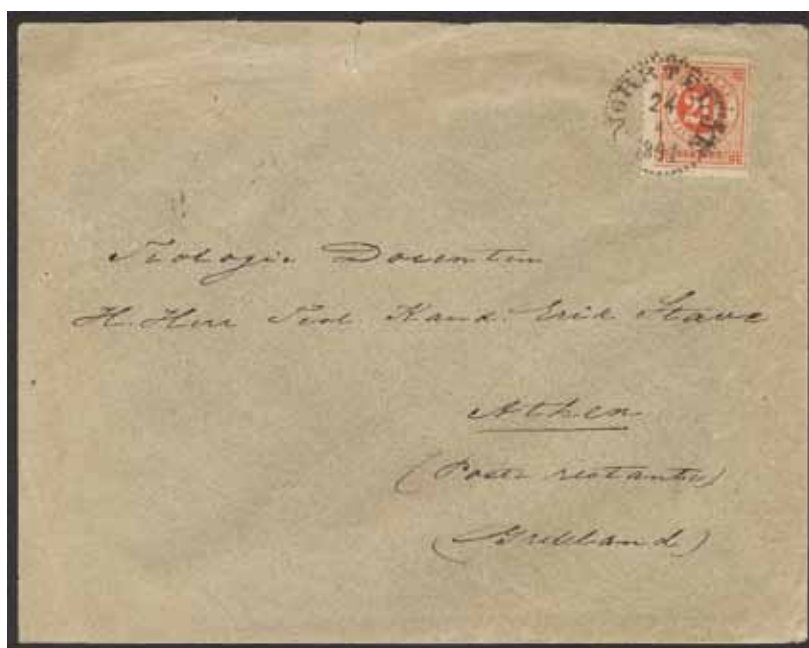 NORRTELJE
24
1
1891
20
Teologie Docenten
H. Herr Teol. Kand. Erik Stave
Athen
(Poste restante)
(Grekland)